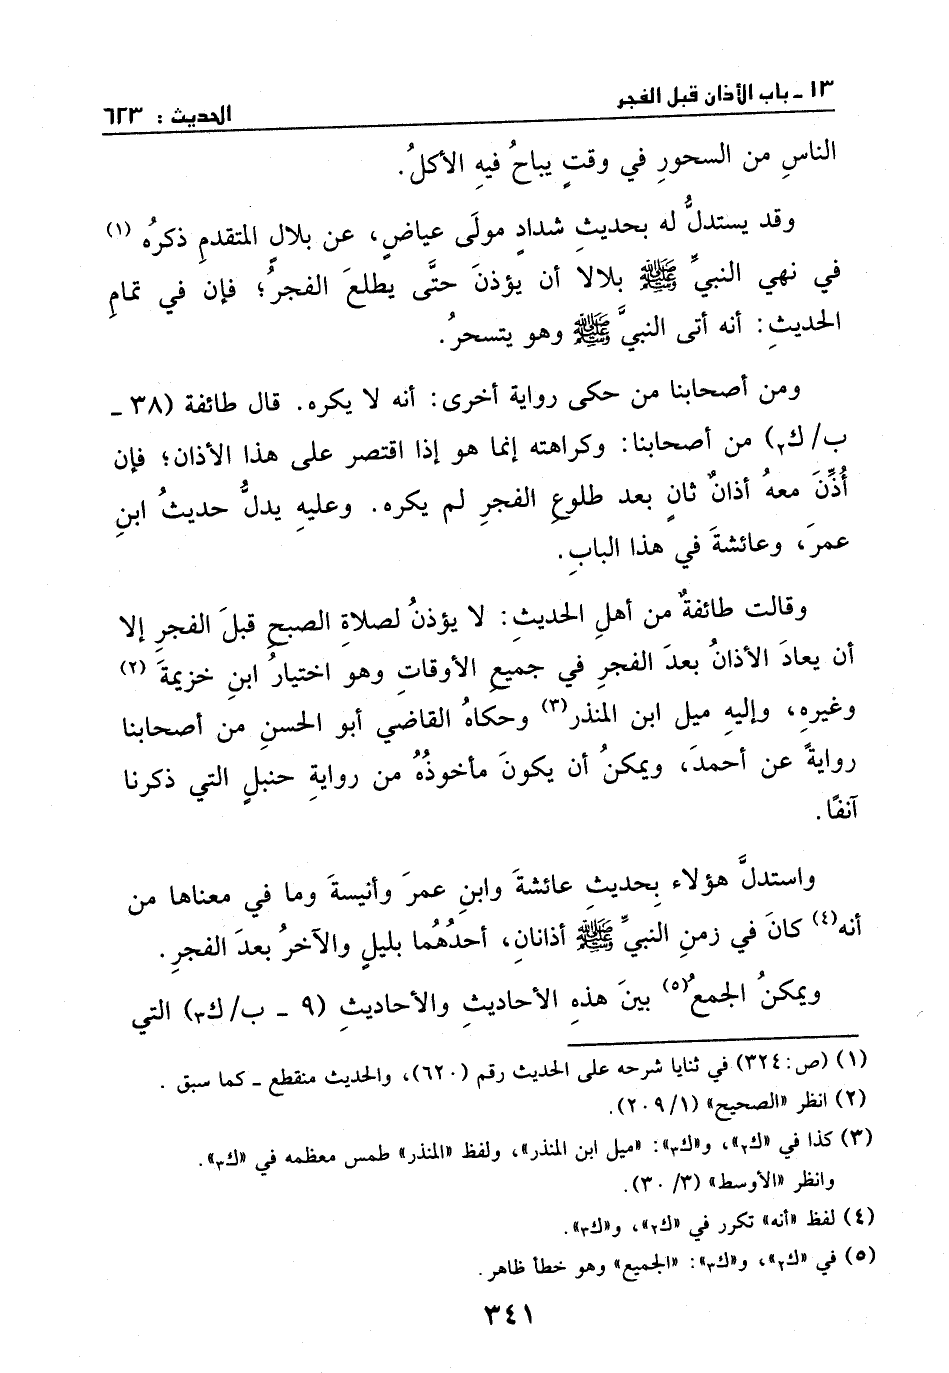 ١٣ ـ باب الأذان قبل الفجر
الحديث : ٦٢٣
الناسِ من السحورِ في وقتٍ يباحُ فيهِ الأكلُ.
وقد يستدلُّ له بحديثِ شدادٍ مولَى عياضٍ، عن بلالٍ المتقدمِ ذكرُه (١)
في نهي النبيِّ ﷺ بلالا أن يؤذنَ حتَّى يطلعَ الفجرُ؛ فإن في تمامِ
الحديثِ: أنه أتى النبيَّ ﷺ وهو يتسحرُ.
ومن أصحابنا من حكى رواية أخرى: أنه لا يكره. قال طائفة (٣٨ ـ
ب/ك٢) من أصحابنا: وكراهته إنما هو إذا اقتصر على هذا الأذان؛ فإن
أُذِّنَ معهُ أذانٌ ثانٍ بعد طلوعِ الفجرِ لم يكره. وعليهِ يدلُّ حديثُ ابنِ
عمرَ، وعائشةَ في هذا البابِ.
وقالت طائفةٌ من أهلِ الحديثِ: لا يؤذنُ لصلاةِ الصبحِ قبلَ الفجرِ إلا
أن يعادَ الأذانُ بعدَ الفجرِ في جميعِ الأوقاتِ وهو اختيارُ ابنِ خزيمةَ (٢)
وغيرِهِ، وإليهِ ميل ابن المنذر(٣) وحكاهُ القاضي أبو الحسنِ من أصحابنا
روايةً عن أحمدَ، ويمكنُ أن يكونَ مأخوذُهُ من روايةِ حنبلٍ التي ذكرنا
آنفًا.
واستدلَّ هؤلاء بحديثِ عائشةَ وابنِ عمرَ وأنيسةَ وما في معناها من
أنه(٤) كانَ في زمنِ النبيِّ ﷺ أذانانِ، أحدُهُما بليلٍ والآخرُ بعدَ الفجرِ.
ويمكنُ الجمعُ(٥) بينَ هذهِ الأحاديثِ والأحاديثِ (٩ ـ ب/ك٣) التي
(١) (ص:٣٢٤) في ثنايا شرحه على الحديث رقم (٦٢٠)، والحديث منقطع ـ كما سبق .
(٢) انظر «الصحيح» (٢٠٩/١).
(٣) كذا في «ك٢»، و«ك٣»: «ميل ابن المنذر»، ولفظ «المنذر» طمس معظمه في «ك٣».
وانظر «الأوسط» (٣/ ٣٠).
(٤) لفظ «أنه» تكرر في «ك٢»، و«ك٣».
(٥) في «ك٢»، و«ك٣»: «الجميع» وهو خطأ ظاهر.
٣٤١